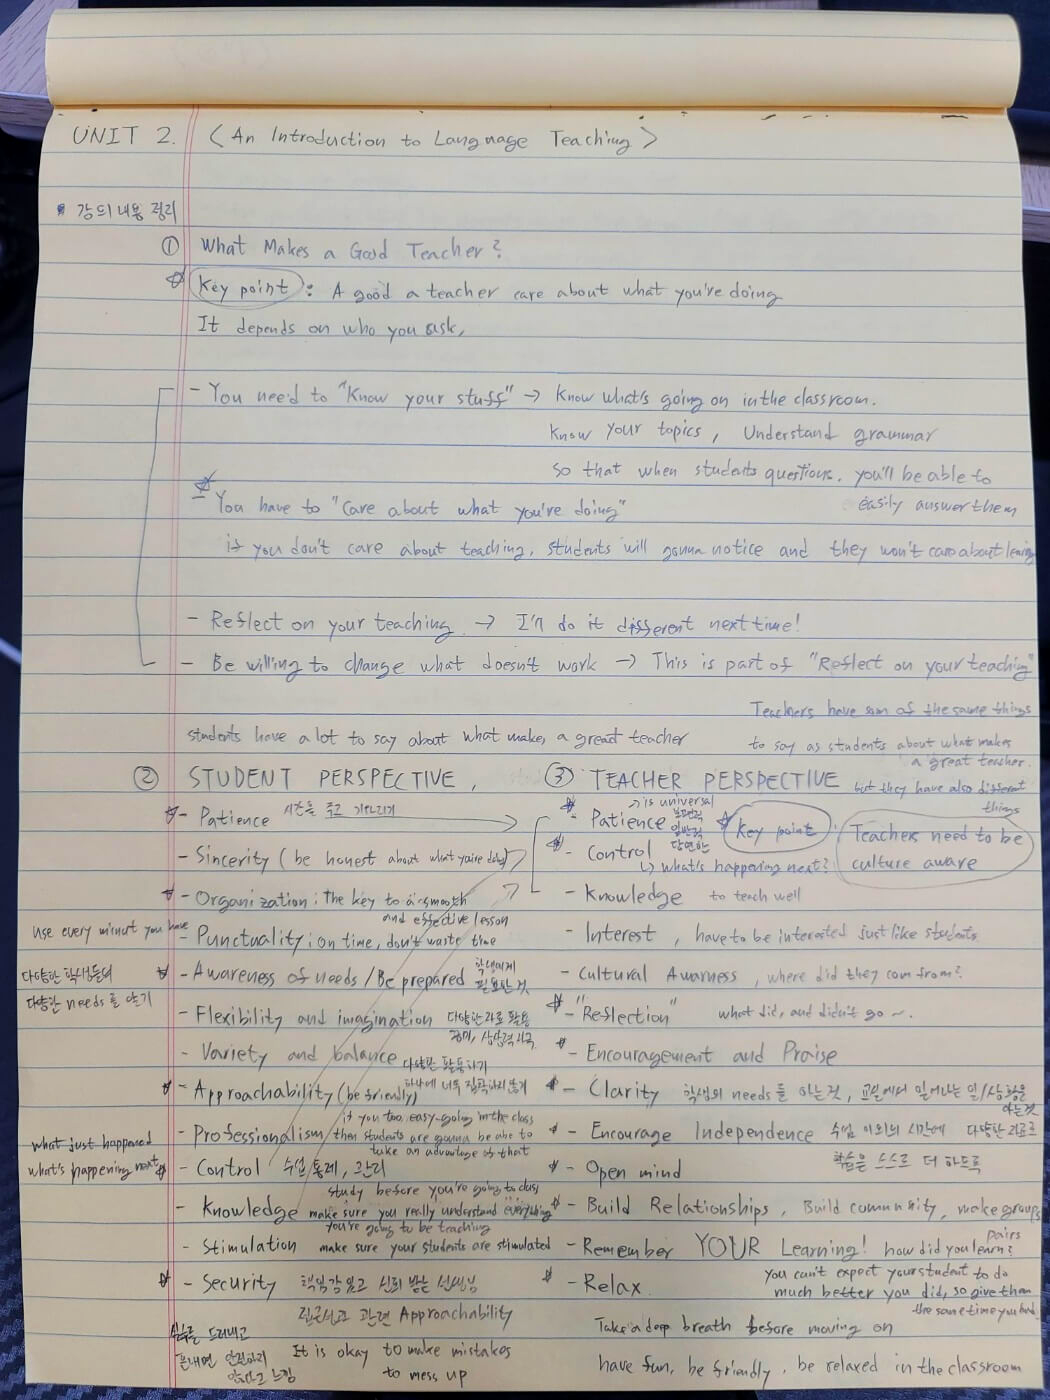 UNIT 2. < An Introduction to Language Teaching >
강의 내용 정리
① What Makes a Good Teacher?
Key point : A good a teacher care about what you're doing
It depends on who you ask,
- You need to "Know your stuff" → Know what's going on in the classroom.
Know your topics, Understand grammar
so that when students questions, you'll be able to
easily answer them
- You have to "Care about what you're doing"
if you don't care about teaching, students will gonna notice and they won't care about
- Reflect on your teaching → I'll do it different next time!
- Be willing to change what doesn't work → This is part of "Reflect on your teaching"
students have a lot to say about what makes a great teacher
② STUDENT PERSPECTIVE,
- Patience 시간을 주고 기다리기
- Sincerity (be honest about what you're doing)
- Organization : The key to a smooth
and effective lesson
use every minurt you have
- Punctuality : on time, don't waste time
- Awareness of needs / Be prepared 학생에게
필요한 것
다양한 학생들의
다양한 needs를 알기
- Flexibility and imagination 다양한 과로 활용
상상력
- Variety and balance 다양한 활동하기
하나에 너무 집착하지 않기
- Approachability (be friendly)
if you too easy-going in the class
- Professionalism then students are gonna be able to
take an advantage of that
what just happened
what's happening next
- Control 수업 통제, 관리
study before you're going to class
- Knowledge make sure you really understand everything
you're going to be teaching
- Stimulation make sure your students are stimulated
- Security 책임감 있고 신뢰 받는 선생님
관련 Approachability
실수를 드러내고
It is okay to make mistakes
to mess up
Teachers have som of the same things
to say as students about what makes
a great teacher.
but they have also different
things
③ TEACHER PERSPECTIVE
→ is universal
- Patience 보편적
일반적
당연한
Key point : Teachers need to be
culture aware
- Control
↳ what's happening next?
- Knowledge to teach well
- Interest, have to be interested just like students
- Cultural Awarness, where did they com from?
- "Reflection" what did, and didn't go ~.
- Encouragement and Praise
- Clarity 학생의 needs를 아는것, 교실에서 일어나는 일/상황을
아는것
- Encourage Independence 수업 이외의 시간에 다양한 과로로
학습을 스스로 더 하도록
- Open mind
- Build Relationships, Build community, make groups
pairs
- Remember YOUR Learning! how did you learn?
you can't expect your student to do
much better you did, so give them
the same time you had.
- Relax.
Take a deep breath before moving on
have fun, be friendly, be relaxed in the classroom